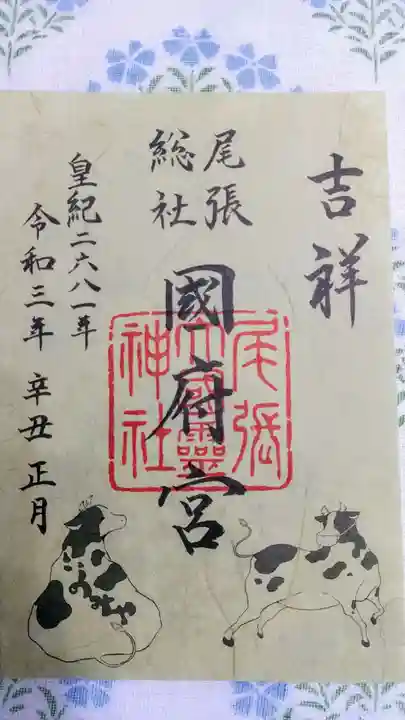 吉祥
尾張
総社
國府宮
尾張
大國靈
神社
皇紀二六八一年
令和三年 辛丑 正月